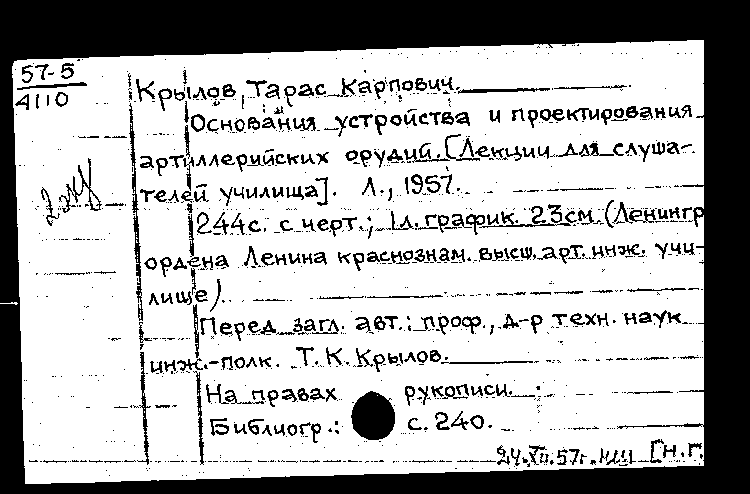 57-5
4110
Крылов, Тарас Карпович.
Основания устройства и проектирования
артиллерийских орудий. [Лекции для слуша-
телей училища]. Л., 1957.
244с. с черт.; 1л. график. 23см. (Ленингр
ордена Ленина краснознам. высш. арт. инж. учи-
лище).
Перед загл. авт.: проф., д-р техн. наук
инж.-полк. Т. К. Крылов.
На правах рукописи.
Библиогр.: с. 240.
24.XII.57г. [н.г.